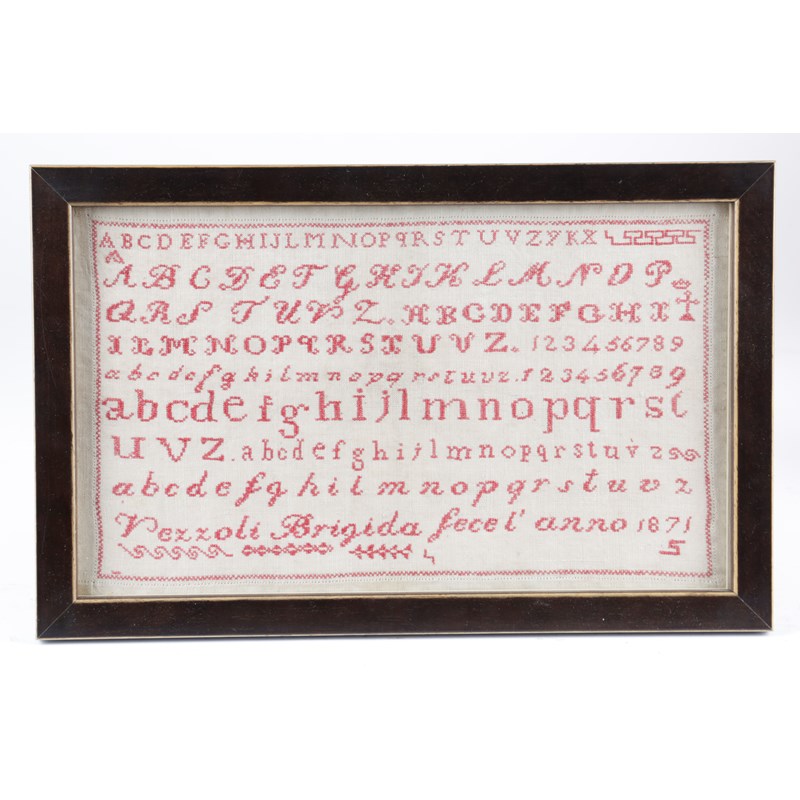 ABCDEFGHIJLMNOPQRSTUVZYKX
A
ABCDEFGHIKLMNOP
QRSTUVZ. ABCDEFGHI
ILMNOPQRSTUVZ. 123456789
abcdefghilmnopqrstuvz. 123456789
abcdefghijlmnopqrst
UVZ. abcdefghijlmnopqrstuvz
abcdefghilmnopqrstuvz
Vezzoli Brigida fece l' anno 1871